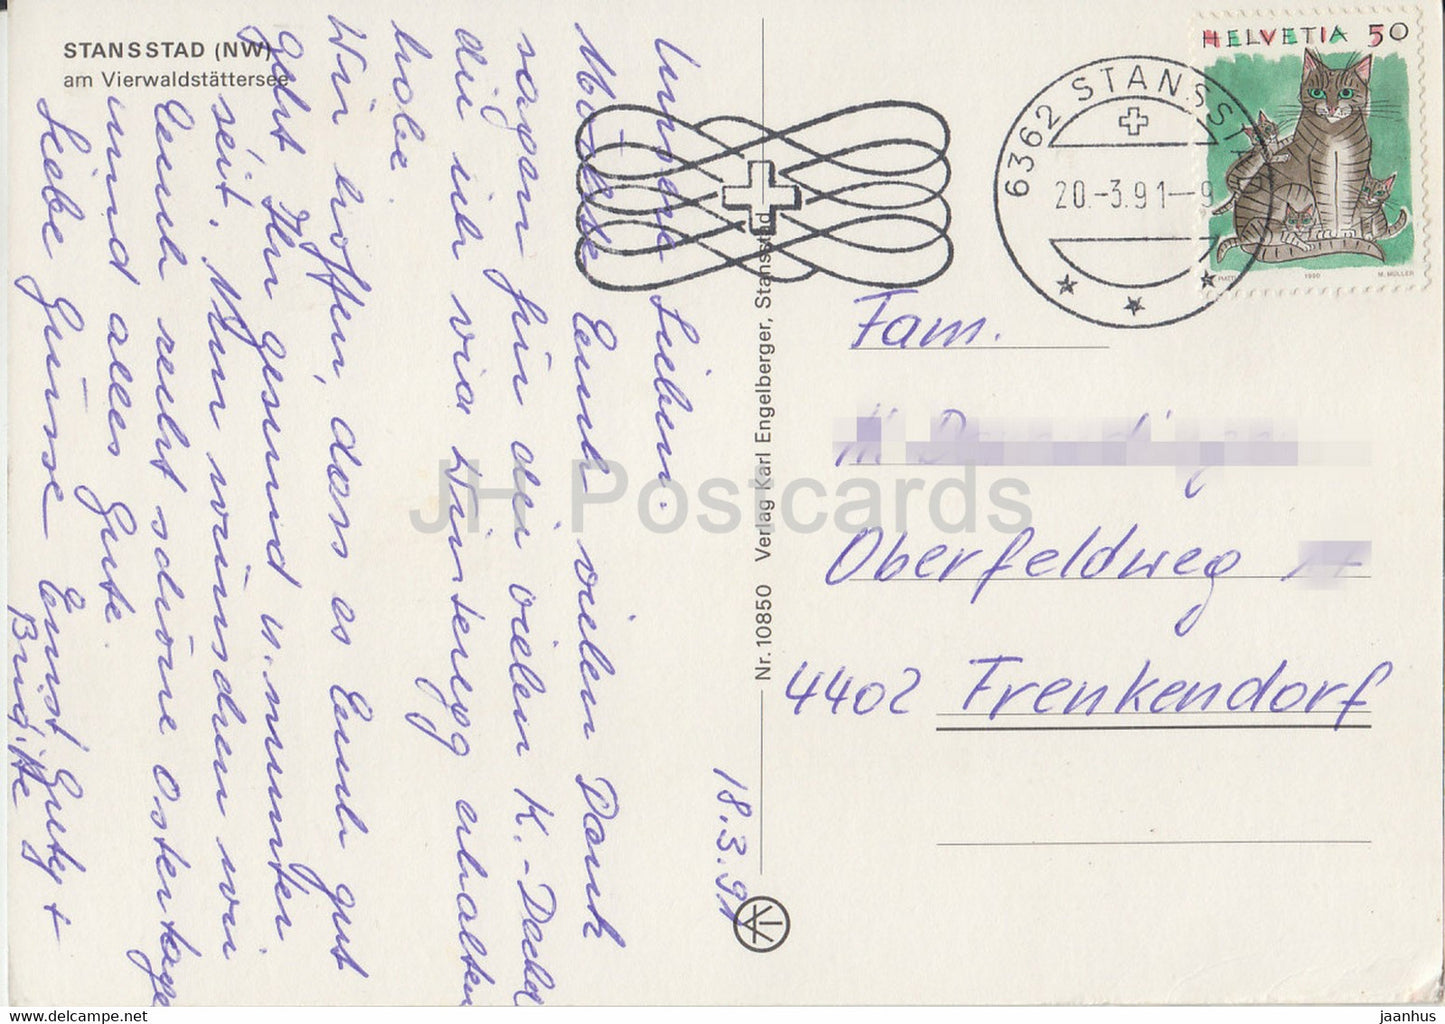 STANSSTAD (NW)
am Vierwaldstättersee
18.3.91
Unsere Lieben.
Möchte Euch vielen Dank
sagen für die vielen K.-Deckel
die ich via Winteregg erhalten
habe.
Wir hoffen, dass es Euch gut
geht. Ihr gesund u. munter
seit. Nun wünschen wir
Euch recht schöne Ostertage
und alles Gute.
Liebe Grüsse Ernst
Brigitte
Nr. 10850 Verlag Karl Engelberger, Stansstad
6362 STANSST
20.-3.91-9
HELVETIA 50
1990 M. MÜLLER
Fam.
Oberfeldweg
4402 Frenkendorf
JH Postcards
https://www.delcampe.net/en
jaanhus